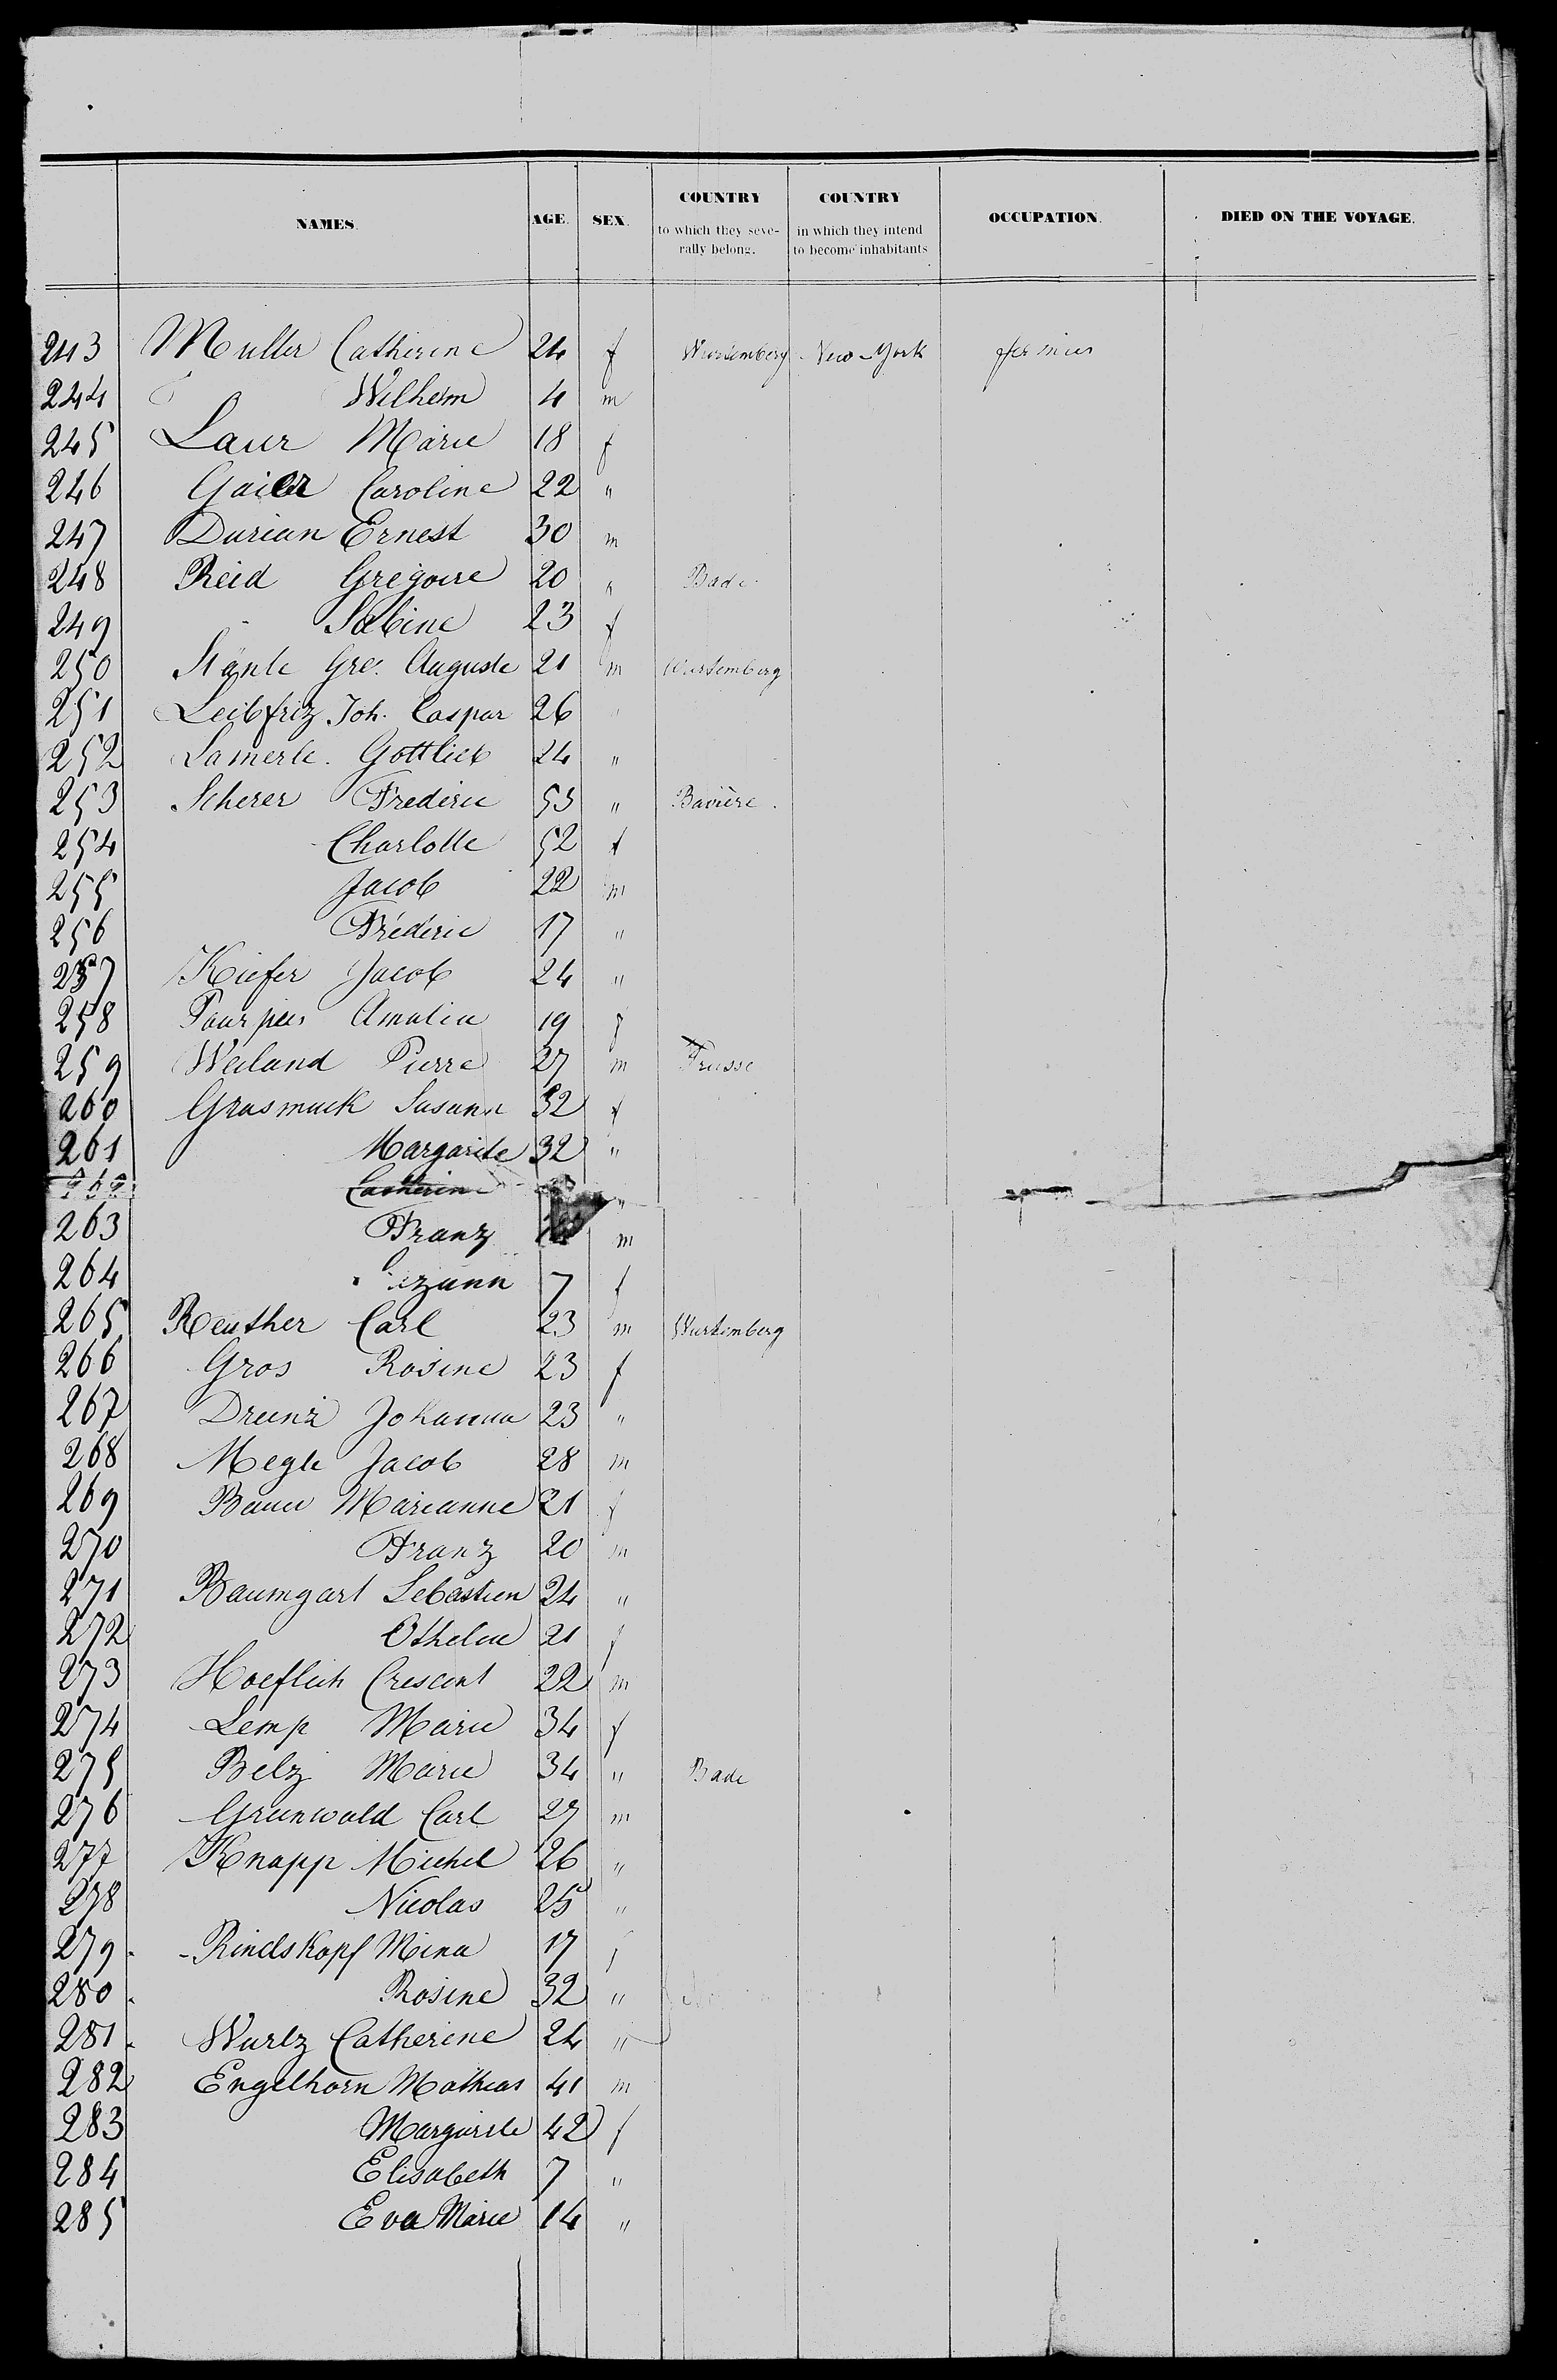 NAMES. AGE. SEX. COUNTRY to which they seve- rally belong. COUNTRY in which they intend to become inhabitants OCCUPATION. DIED ON THE VOYAGE.
243 Muller Catherine 24 f Wurtemberg New-York
244 Wilhelm 4 m
245 Laur Marie 18 f
246 Gaier Caroline 22 "
247 Durian Ernest 30 m
248 Reid Gregoire 20 " Bade
249 Sabine 23 f
250 Stänle Gre. Auguste 21 m Wurtemberg
251 Leibfriz Joh. Caspar 26 "
252 Lamerle. Gottlieb 24 "
253 Scherer Frederic 53 " Bavière.
254 Charlotte 52 f
255 Jacob 22 m
256 Fréderic 17 "
257 Kiefer Jacob 24 "
258 Amalia 19 f
259 Weiland Pierre 27 m Prusse
260 Grasmuck Susann 32 f
261 Margarite 32 "
262 Catherine "
263 Franz m
264 7 f
265 Reuther Carl 23 m Wurtemberg
266 Gros Rosine 23 f
267 Johanna 23 "
268 Megle Jacob 28 m
269 Bauer Marianne 21 f
270 Franz 20 m
271 Baumgart Sebastien 24 "
272 21 f
273 Hoeflich Crescent 22 m
274 Lemp Marie 34 f
275 Belz Marie 34 " Bade
276 Grunwald Carl 27 m
277 Knapp Michel 26 "
278 Nicolas 25 "
279 Rindskopf Mina 17 f
280 Rosine 32 "
281 Wurlz Catherine 24 "
282 Engelhorn Mathias 41 m
283 Margarite 42 f
284 Elisabeth 7 "
285 Eva Marie 14 "